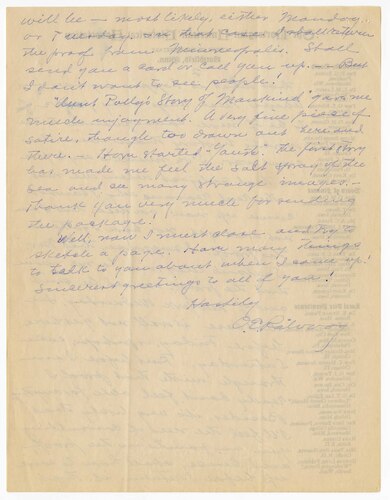 will be — most likely, either Monday
or Tuesday. In that case I shall return
the proof from Minneapolis. Shall
send you a card or call you up. — But
I don't want to see people!
"Aunt Polly's Story of Mankind" gave me
much enjoyment. A very fine piece of
satire, though too drawn out here and
there. — Have started the first story
has made me feel the salt spray of the
sea and see many strange —
Thank you very much for sending
the package!
Well, now I must close and try to
sketch a page. Have many things
to talk to you about when I come up!
Sincerest greetings to all of you!
Hastily
O E Rölvaag